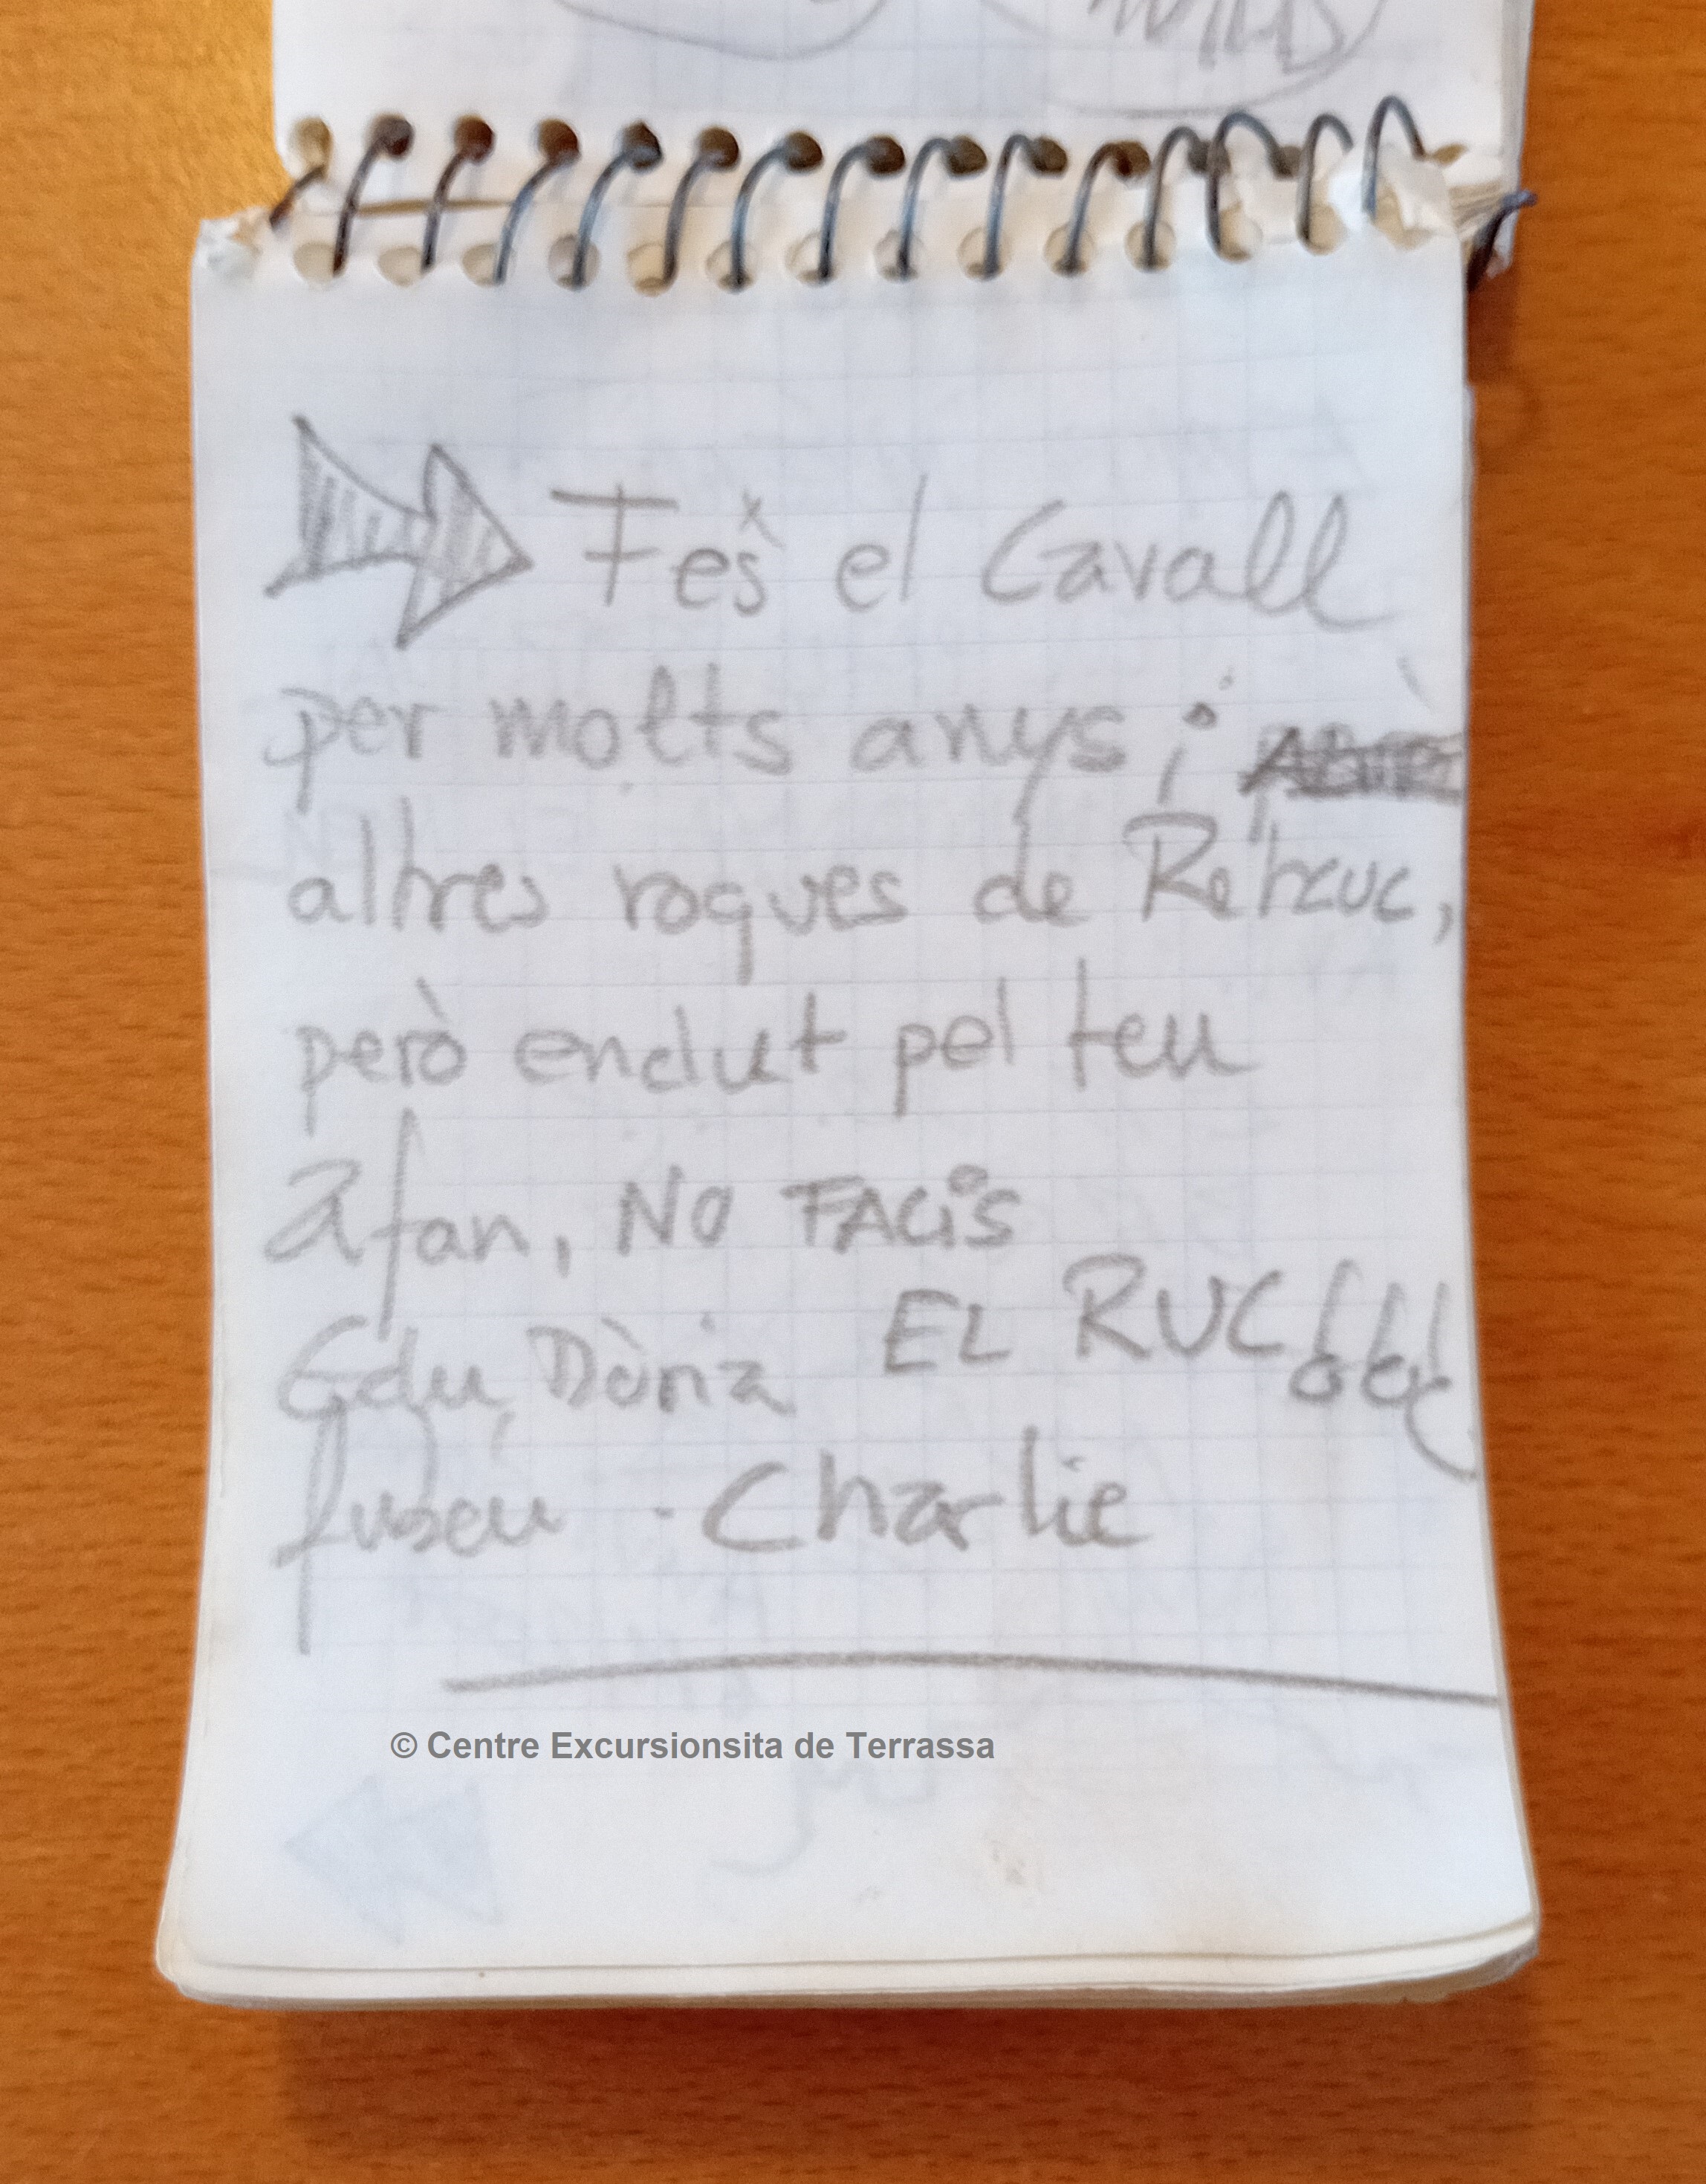 Fes el Cavall
per molts anys i
altres roques de Retruc,
però enclut pel teu
afan, NO FACiS
EL RUC!!!
Edu, Dòria
Charlie
© Centre Excursionsita de Terrassa